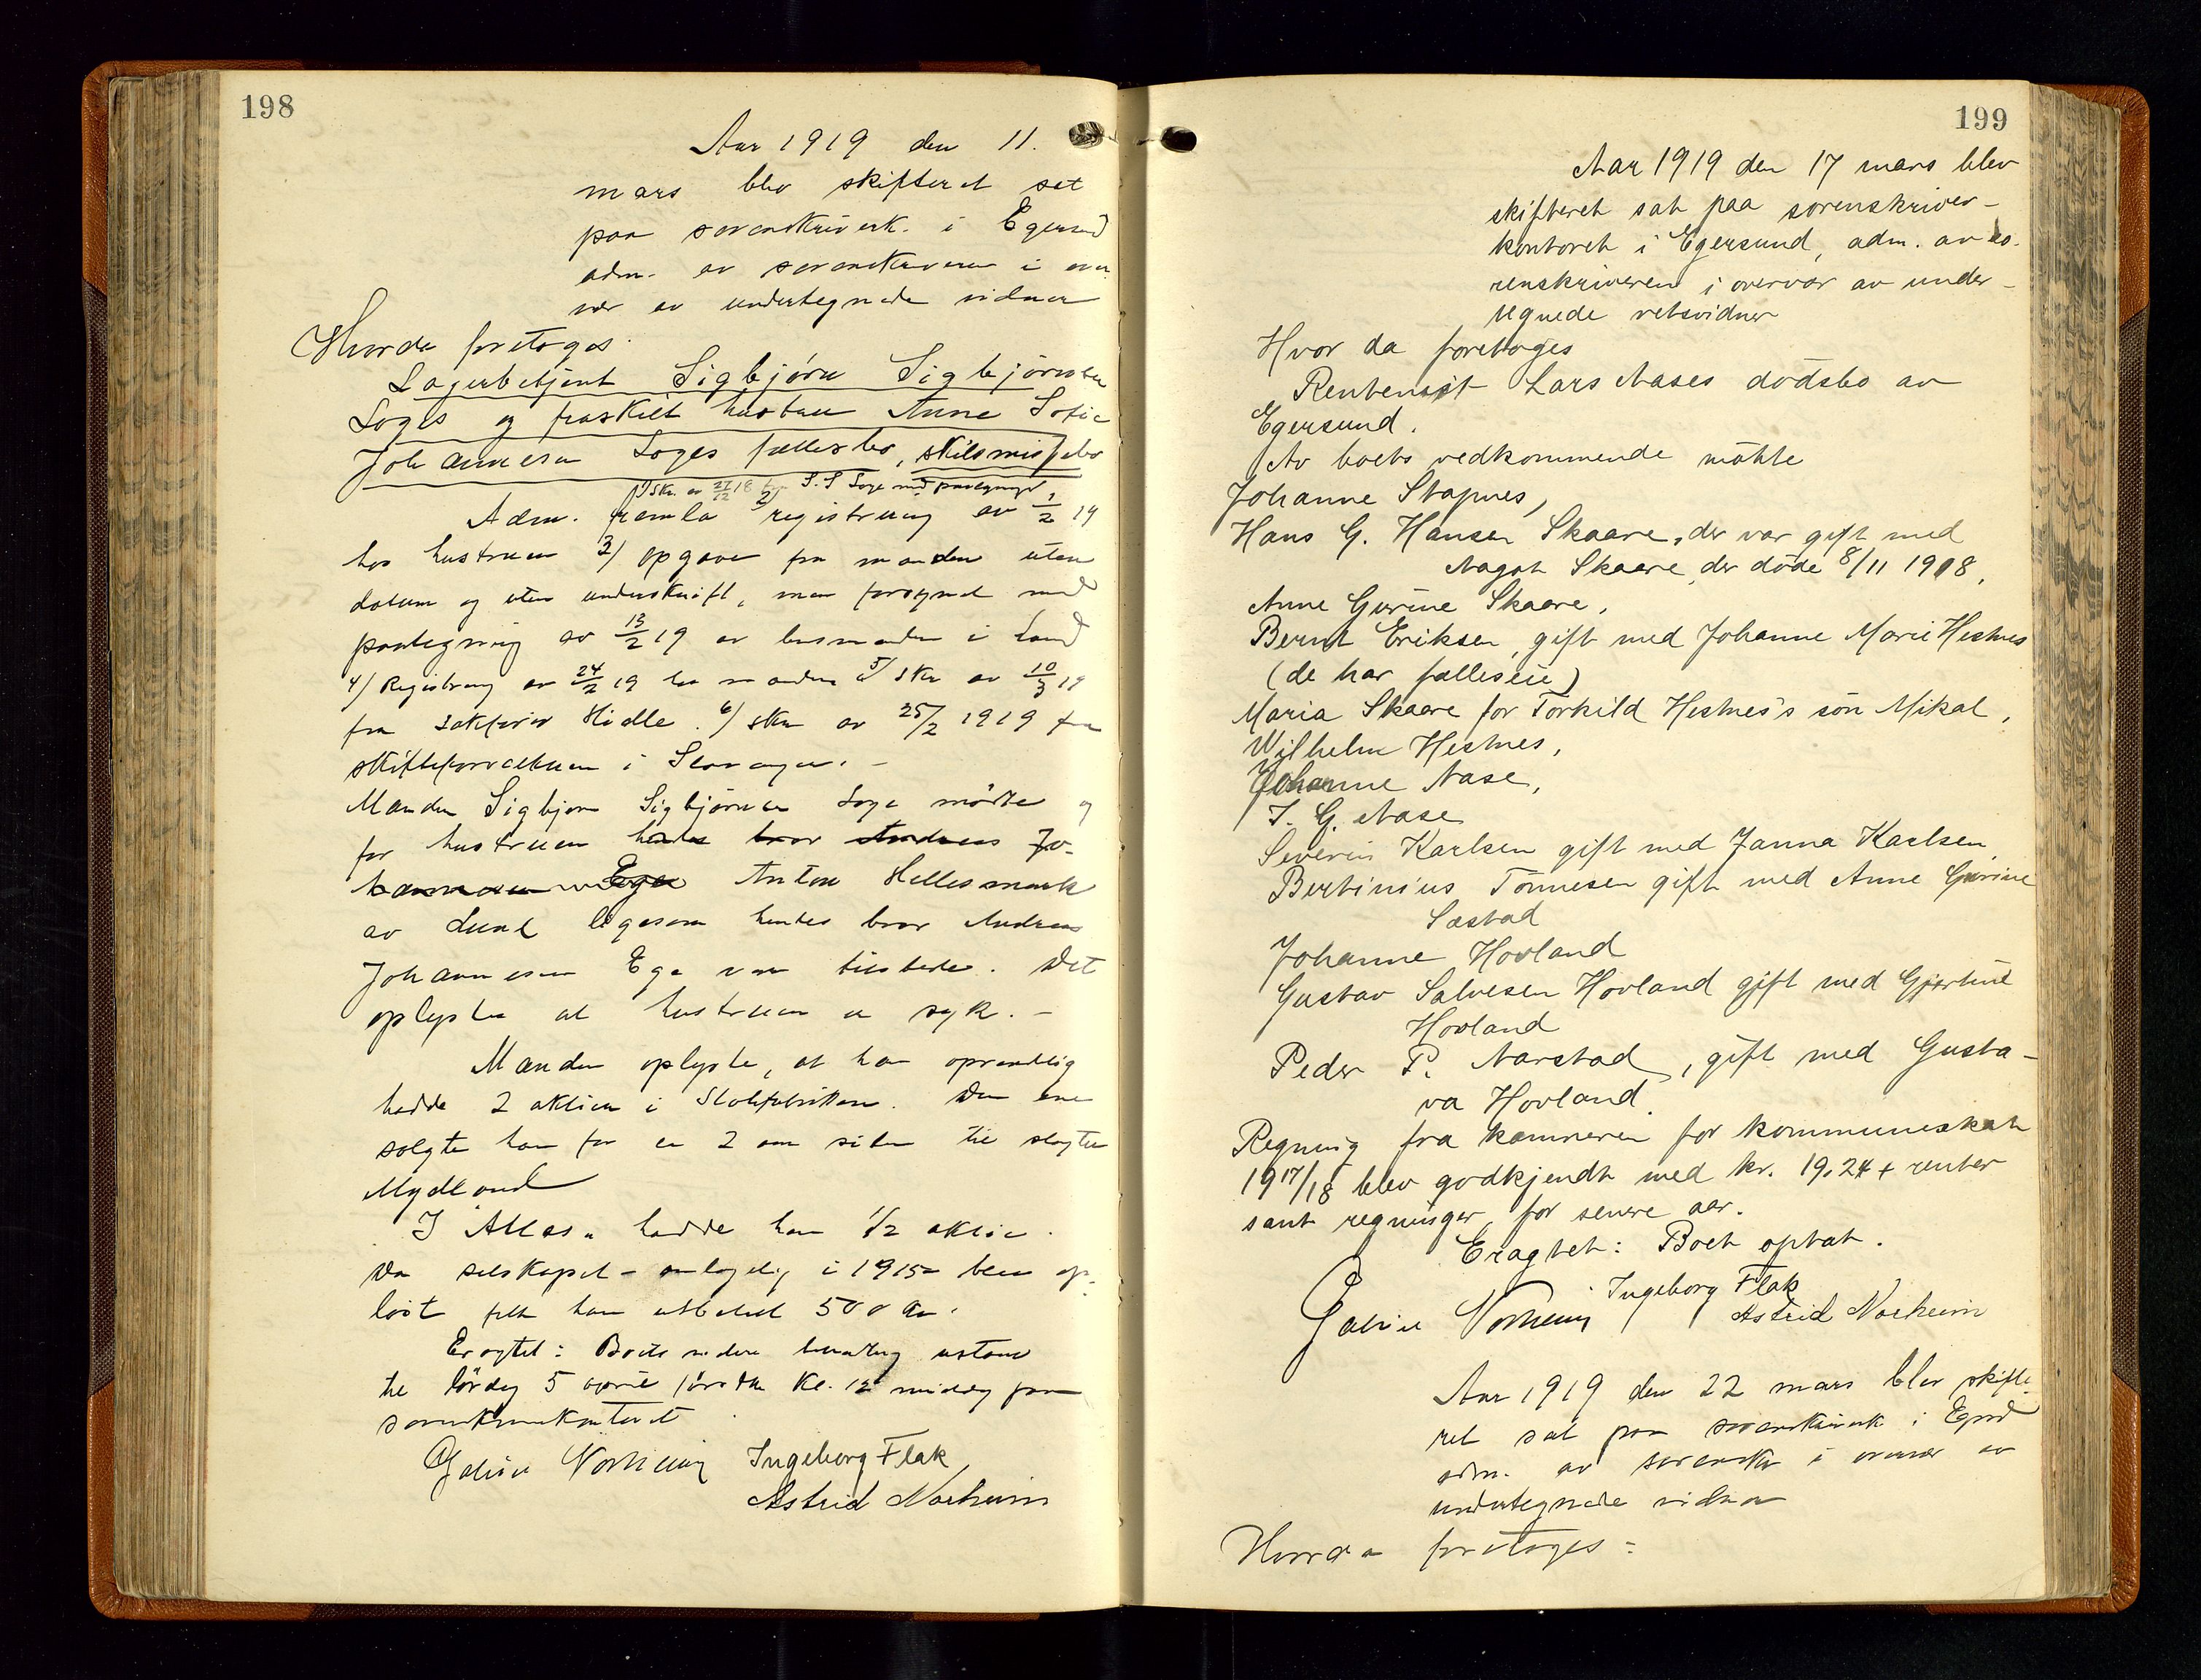 198
Aar 1919 den 11.
mars blev skifteret sat
paa sorenskriverk. i Egersund
adm. av sorenskriveren i over
vær av undertegnede vidner
Hvorda foretoges:
Lagerbetjent Sigbjørn Sigbjørnsen
Soges og fraskilt hustru Anne Sofie
Johannesen Soges fællesbo, skilsmissebo
1) Skr. av 27/12 18 fra S. S Soge med paategnings
Adm. fremla 2) registrering av 1/2 19
hos hustruen 3) opgave fra manden uten
datum og uten underskrift, men forsynet med
paategning av 13/2 19 av lensmanden i Lund
4) Registrering av 24/2 19 hos manden 5) skr av 10/3 19
fra sakfører Hidle. 6) skr av 25/2 1919 fra
skifteforvalteren i Stavanger. -
Manden Sigbjørn Sigbjørnsen Soge mødte og
for hustruen hendes bror Andreas Jo-
hannesen Ege Anton Hellesmark
av Lund ligesom hendes bror Andreas
Johannesen Ege var tilstede. Det
oplystes at hustruen er syk. -
Manden oplyste, at han oprindelig
hadde 2 aktier i Stolefabrikken. Den ene
solgte han for en 2 aar siden til slagter
Mydland
I "Atlas" hadde han 1/2 aktie.
Da selskapet - antagelig i 1915 - blev op-
løst fik han utbetalt 500 kr.
Eragtet: Boets videre behandling utstaar
til lørdag 5 april førstk. kl. 12 middag paa
sorenskriverkontoret
Gabriel Norheim Ingeborg Flak
Astrid Norheim
199
Aar 1919 den 17 mars blev
skifteret sat paa sorenskriver-
kontoret i Egersund, adm. av so-
renskriveren i overvær av under-
tegnede retsvidner
Hvor da foretoges
Rentenist Lars Aases dødsbo av
Egersund.
Av boets vedkommende møtte
Johanne Stapnes,
Hans G. Hansen Skaare, der var gift med
Aagot Skaare, der døde 8/11 1918,
Anne Gurine Skaare,
Bernt Eriksen, gift med Johanne Marie Hestnes
(de har fælleseie)
Maria Skaare for Torkild Hestnes's søn Mikal,
Wilhelm Hestnes,
Johanne Aase,
T. G. Aase
Severin Karlsen gift med Janna Karlsen
Bertinius Tønnesen gift med Anne Gurine
Sæstad
Johanne Hovland
Gustav Salvesen Hovland gift med Gjertine
Hovland
Peder P. Aarstad, gift med Gusta-
va Hovland.
Regning fra kæmneren for kommuneskat
1917/18 blev godkjendt med kr. 19,24 + renter
samt regninger for senere aar.
Eragtet: Boet optat.
Gabriel Norheim Ingeborg Flak
Astrid Norheim
Aar 1919 den 22 mars blev skifte-
ret sat paa sorenskriverk i Egrsd
adm. av sorenskr i overvær av
undertegnede vidner
Hvorda foretoges: